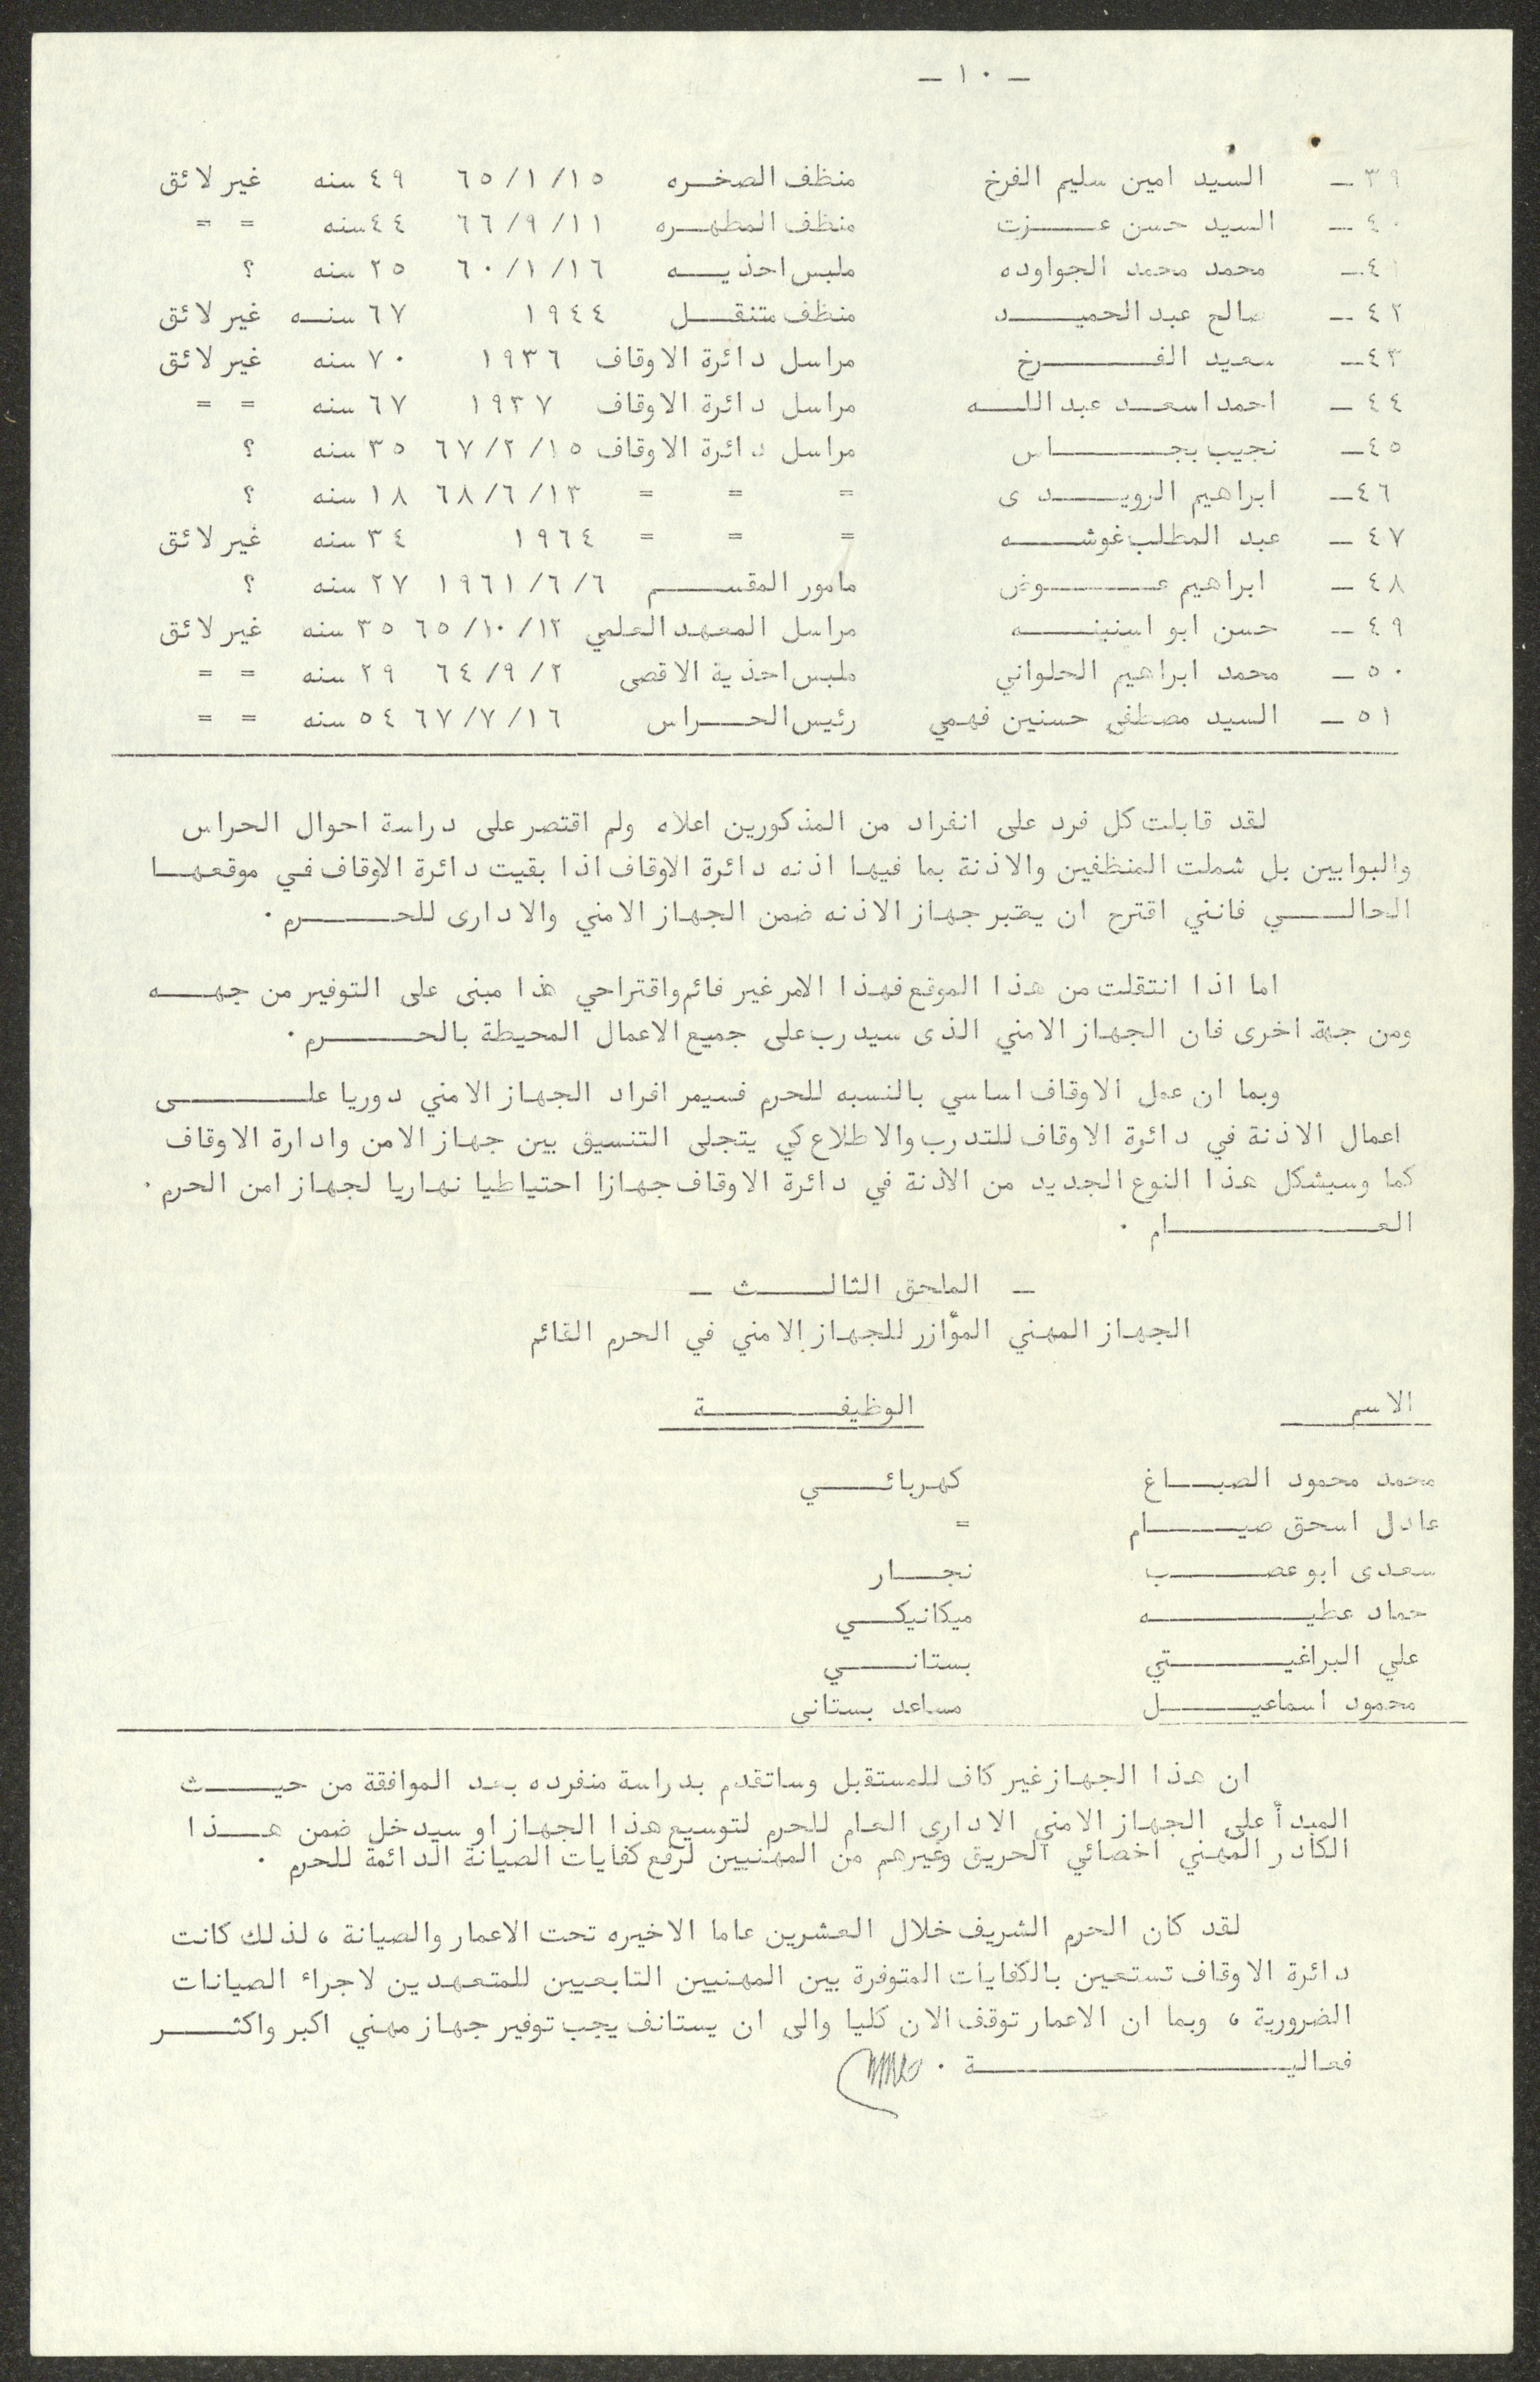 - ١٠ -
٣٩ - السيد امين سليم الفرخ منظف الصخره ٦٥/١/١٥ ٤٩ سنه غير لائق
٤٠ - السيد حسن عزت منظف المطهره ٦٦/٩/١١ ٤٤ سنه = =
٤١ - محمد محمد الجواوده ملبس احذيه ٦٠/١/١٦ ٢٥ سنه ؟
٤٢ - صالح عبد الحميد منظف متنقل ١٩٤٤ ٦٧ سنه غير لائق
٤٣ - سعيد الفرخ مراسل دائرة الاوقاف ١٩٣٦ ٧٠ سنه غير لائق
٤٤ - احمد اسعد عبد الله مراسل دائرة الاوقاف ١٩٣٧ ٦٧ سنه = =
٤٥ - نجيب بجاس مراسل دائرة الاوقاف ٦٧/٢/١٥ ٣٥ سنه ؟
٤٦ - ابراهيم الرويدى = = = ٦٨/٦/١٣ ١٨ سنه ؟
٤٧ - عبد المطلب غوشه = = = ١٩٦٤ ٣٤ سنه غير لائق
٤٨ - ابراهيم عوض مامور المقسم ١٩٦١/٦/٦ ٢٧ سنه ؟
٤٩ - حسن ابو اسنينه مراسل المعهد العلمي ٦٥/١٠/١٢ ٣٥ سنه غير لائق
٥٠ - محمد ابراهيم الحلواني ملبس احذية الاقصى ٦٤/٩/٢ ٢٩ سنه = =
٥١ - السيد مصطفى حسنين فهمي رئيس الحراس ٦٧/٧/١٦ ٥٤ سنه = =
لقد قابلت كل فرد على انفراد من المذكورين اعلاه ولم اقتصر على دراسة احوال الحراس
والبوابين بل شملت المنظفين والاذنة بما فيها اذنه دائرة الاوقاف اذا بقيت دائرة الاوقاف في موقعها
الحالي فانني اقترح ان يعتبر جهاز الاذنه ضمن الجهاز الامني والادارى للحرم .
اما اذا انتقلت من هذا الموقع فهذا الامر غير قائم واقتراحي هذا مبنى على التوفير من جهه
ومن جهة اخرى فان الجهاز الامني الذى سيدرب على جميع الاعمال المحيطة بالحرم .
وبما ان عمل الاوقاف اساسي بالنسبه للحرم فسيمر افراد الجهاز الامني دوريا على
اعمال الاذنة في دائرة الاوقاف للتدرب والاطلاع كي يتجلى التنسيق بين جهاز الامن وادارة الاوقاف
كما وسيشكل هذا النوع الجديد من الاذنة في دائرة الاوقاف جهازا احتياطيا نهاريا لجهاز امن الحرم .
العام .
- الملحق الثالث -
الجهاز المهني المؤازر للجهاز الامني في الحرم القائم
الاسم الوظيفة
محمد محمود الصباغ كهربائي
عادل اسحق صيام =
سعدى ابو عصب نجار
حماد عطيه ميكانيكي
علي البراغيتي بستاني
محمود اسماعيل مساعد بستاني
ان هذا الجهاز غير كاف للمستقبل وساتقدم بدراسة منفرده بعد الموافقة من حيث
المبدأ على الجهاز الامني الادارى العام للحرم لتوسيع هذا الجهاز او سيدخل ضمن هذا
الكادر المهني اخصائي الحريق وغيرهم من المهنيين لرفع كفايات الصيانة الدائمة للحرم .
لقد كان الحرم الشريف خلال العشرين عاما الاخيره تحت الاعمار والصيانة ، لذلك كانت
دائرة الاوقاف تستعين بالكفايات المتوفرة بين المهنيين التابعيين للمتعهدين لاجراء الصيانات
الضرورية ، وبما ان الاعمار توقف الان كليا والى ان يستانف يجب توفير جهاز مهني اكبر واكثر
فعالية .